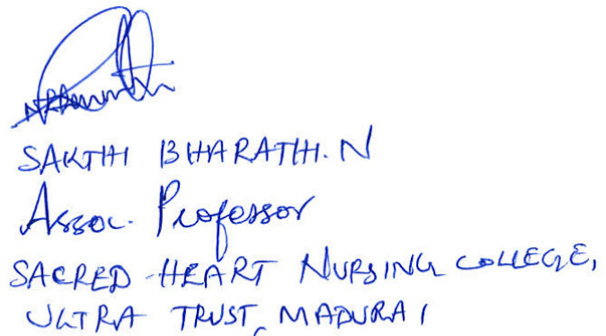 SAKTHI BHARATHI.N
Assoc. Professor
SACRED HEART NURSING COLLEGE,
ULTRA TRUST, MADURAI